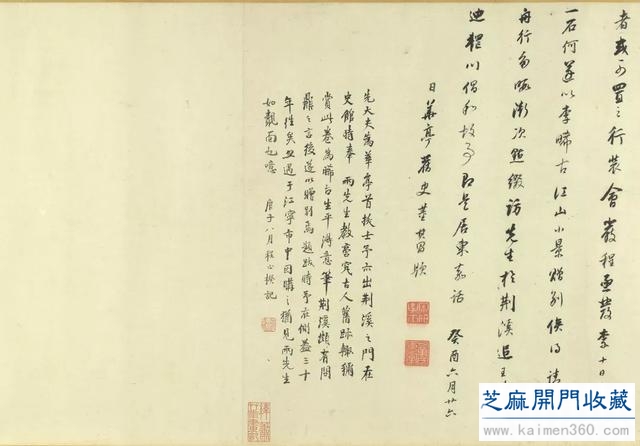 者或可置之行裝會嚴程亟發李十日
一石何遂以李晞古江山小景贈別俟得請
舟行多暇漸次點綴訪先生於荆溪追王
迪輞川倡和故事即是居東嘉話 癸酉六月廿六
日華亭舊史董其昌題
先大夫為華亭首拔士予亦出荆溪之門在
史館時奉 兩先生教鑒定古人舊跡輙
賞此卷為晞古生平得意筆荆溪頗有問
鼎之言後遂以贈別焉題跋時予在側蓋三十
年往矣遇于江寧市中因購之猶見兩先生
如覿面也噫 庚子八月程正揆記
芝麻開門收藏
www.kaimen360.com